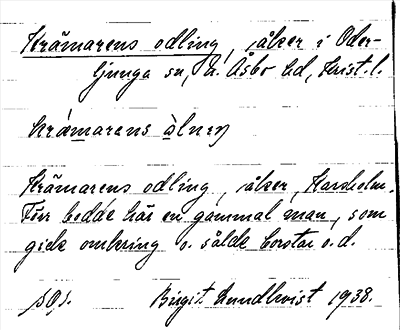 Krämarens odling, åker i Oder-
ljunga sn, N. Åsbo hd, Krist. l.
krämarens àlnėŋ
Krämarens odling, åker, Harsholm.
Förr bodde här en gammal man, som
gick omkring o. sålde borstar o. d.
sgs. Birgit Lundkvist 1938.